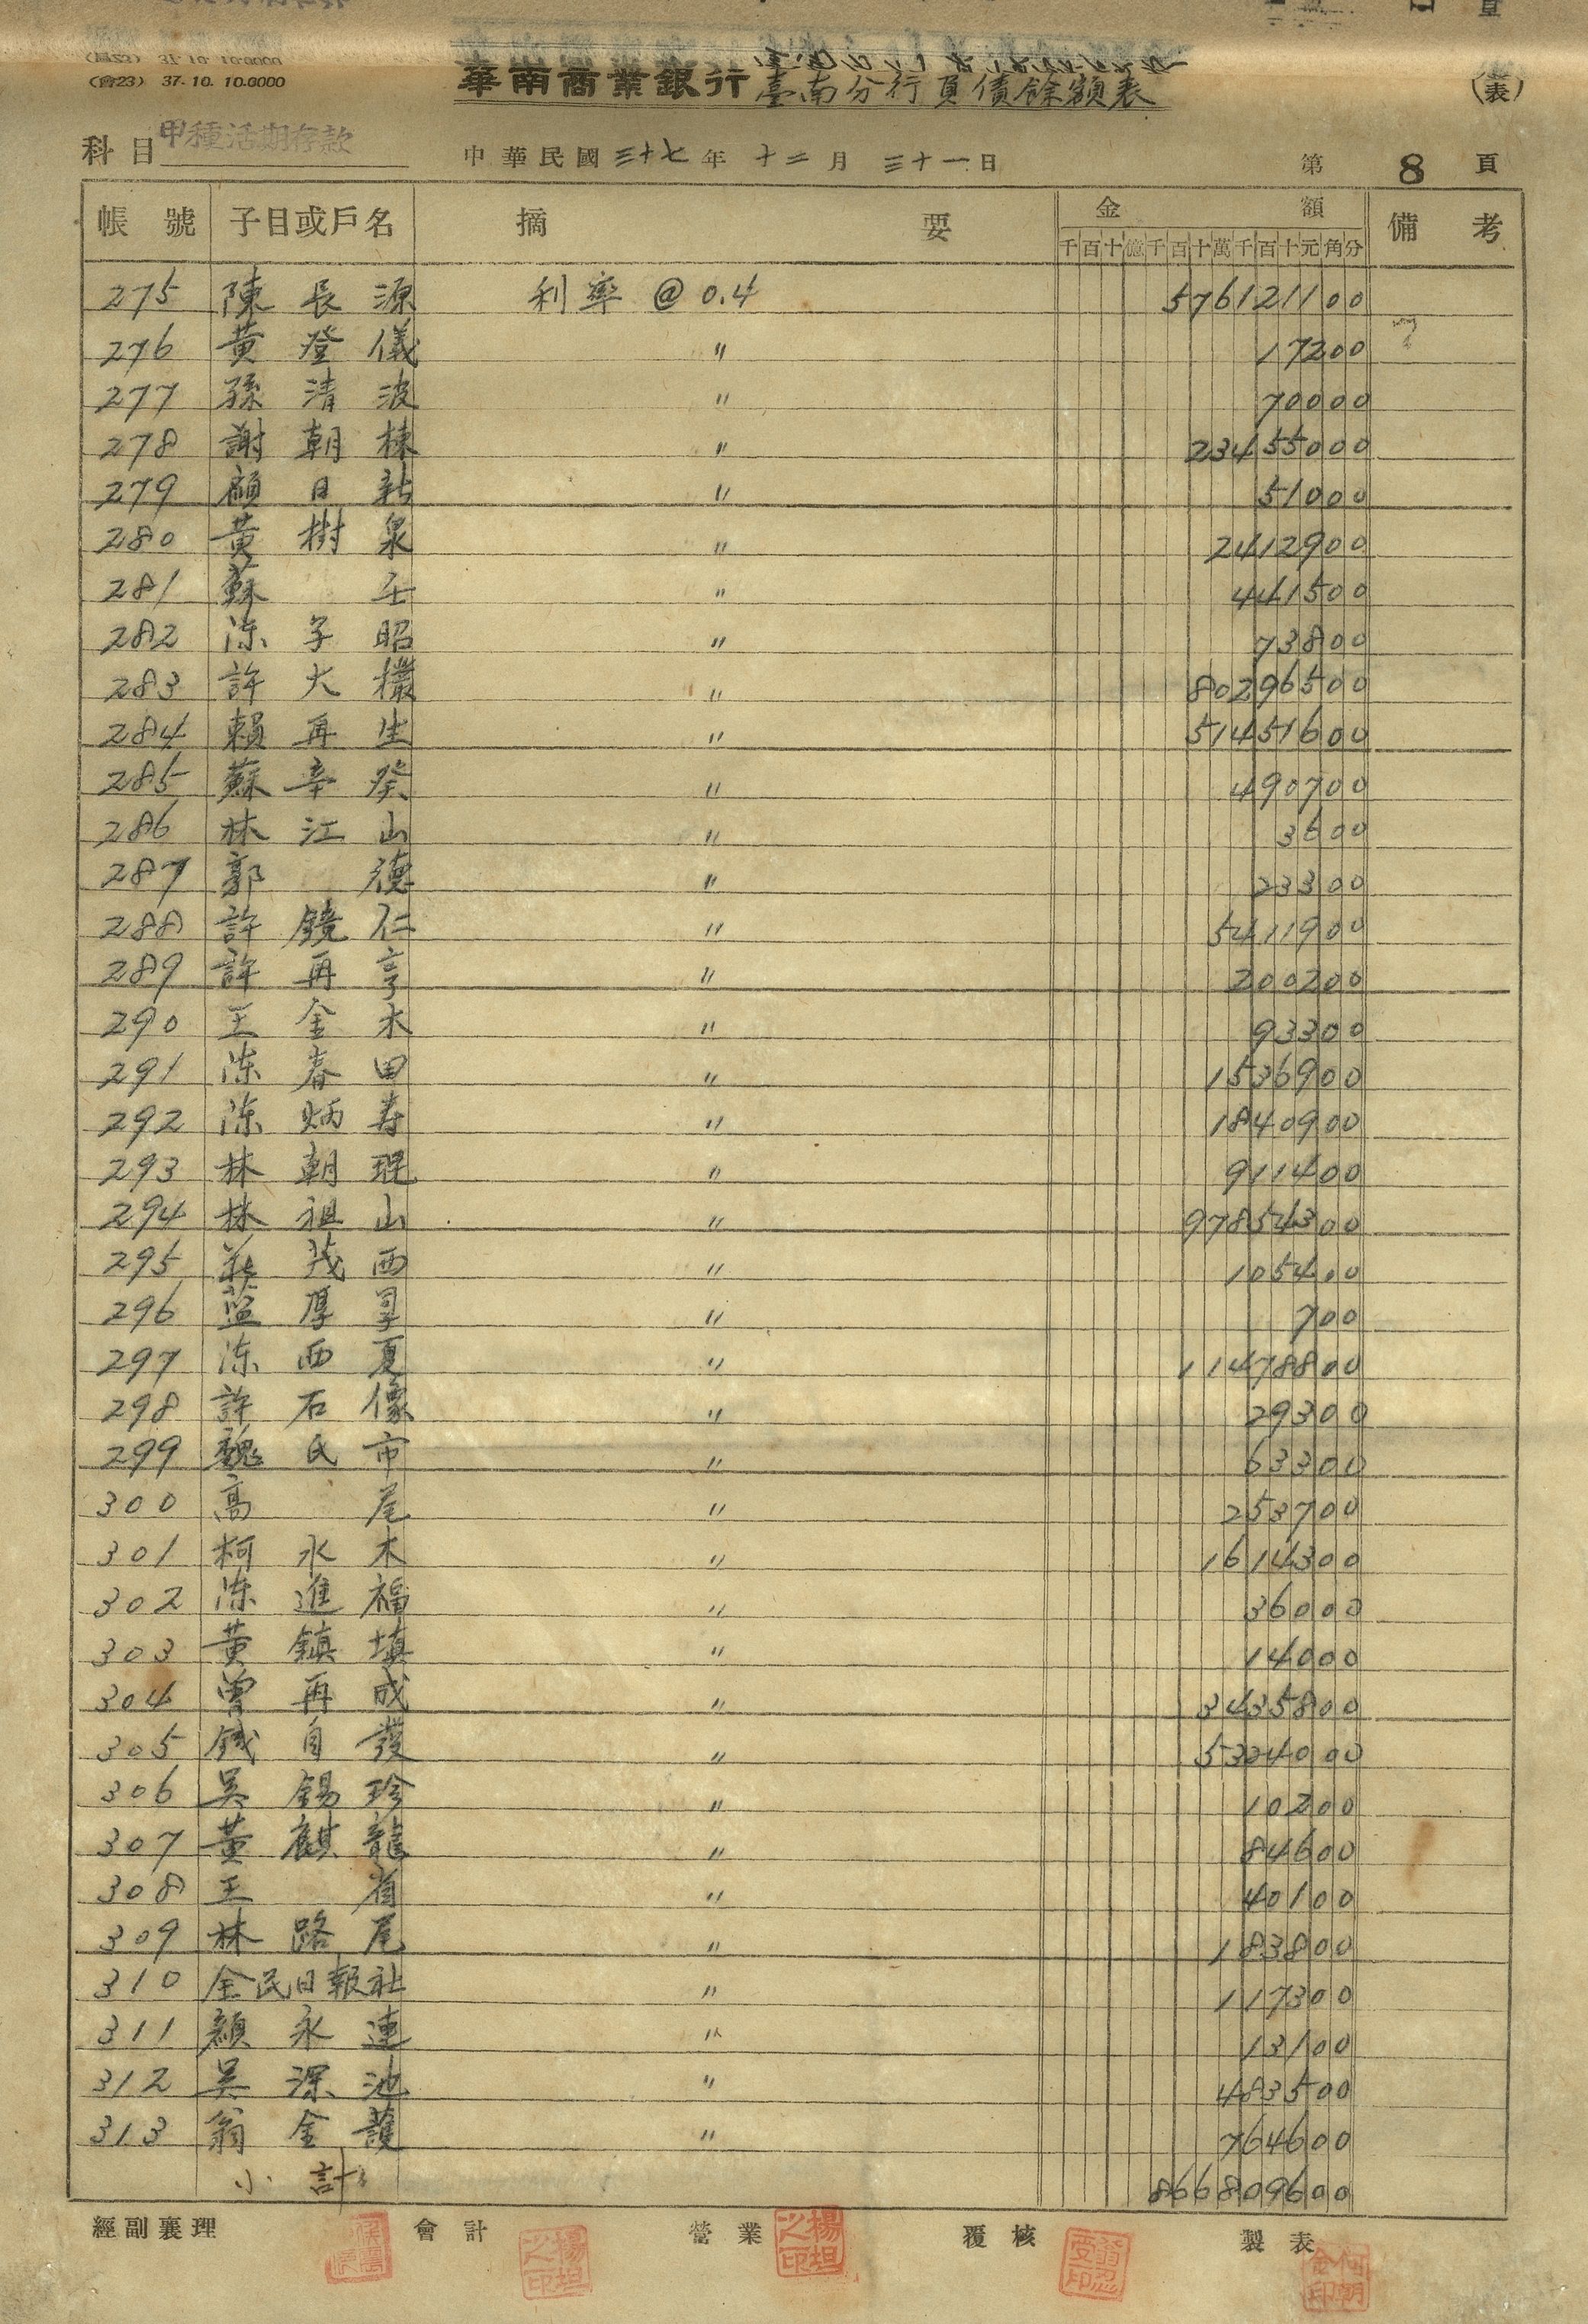 (會23) 37.10. 10.0000
華南商業銀行臺南分行負債餘額表 (表)
科目 甲種活期存款 中華民國三十七年十二月三十一日 第8頁
帳號 子目或戶名 摘要 金額 備考
千百十億千百十萬千百十元角分
275 陳長源 利率 @ 0.4 576121100
276 黃登儀 〃 17200
277 孫清波 〃 70000
278 謝朝棟 〃 23455000
279 顏日新 〃 51000
280 黃樹泉 〃 2412900
281 蘇壬 〃 441500
282 陳子昭 〃 73800
283 許大欉 〃 80296500
284 賴再生 〃 51451600
285 蘇辛癸 〃 490700
286 林江山 〃 3600
287 郭德 〃 23300
288 許鏡仁 〃 5411900
289 許再亨 〃 200200
290 王金木 〃 93300
291 陳春田 〃 1536900
292 陳炳寿 〃 1840900
293 林朝琨 〃 911400
294 林祖山 〃 97854300
295 茂西 〃 105400
296 藍厚 〃 700
297 陳西夏 〃 11478800
298 許石像 〃 29300
299 魏氏市 〃 63300
300 高尾 〃 253700
301 柯水木 〃 1614300
302 陳進福 〃 36000
303 黃鎮填 〃 14000
304 曾再成 〃 3435800
305 錢自發 〃 5324000
306 吳錫珍 〃 10200
307 黃麒龍 〃 84600
308 王省 〃 40100
309 林路尾 〃 183800
310 全民日報社 〃 117300
311 顏永連 〃 13100
312 吳深池 〃 483500
313 翁金護 〃 764600
小計 866809600
經副襄理 會計 營業 覆核 製表
楊坦之印
楊坦之印
翁忍受印
何朝金印